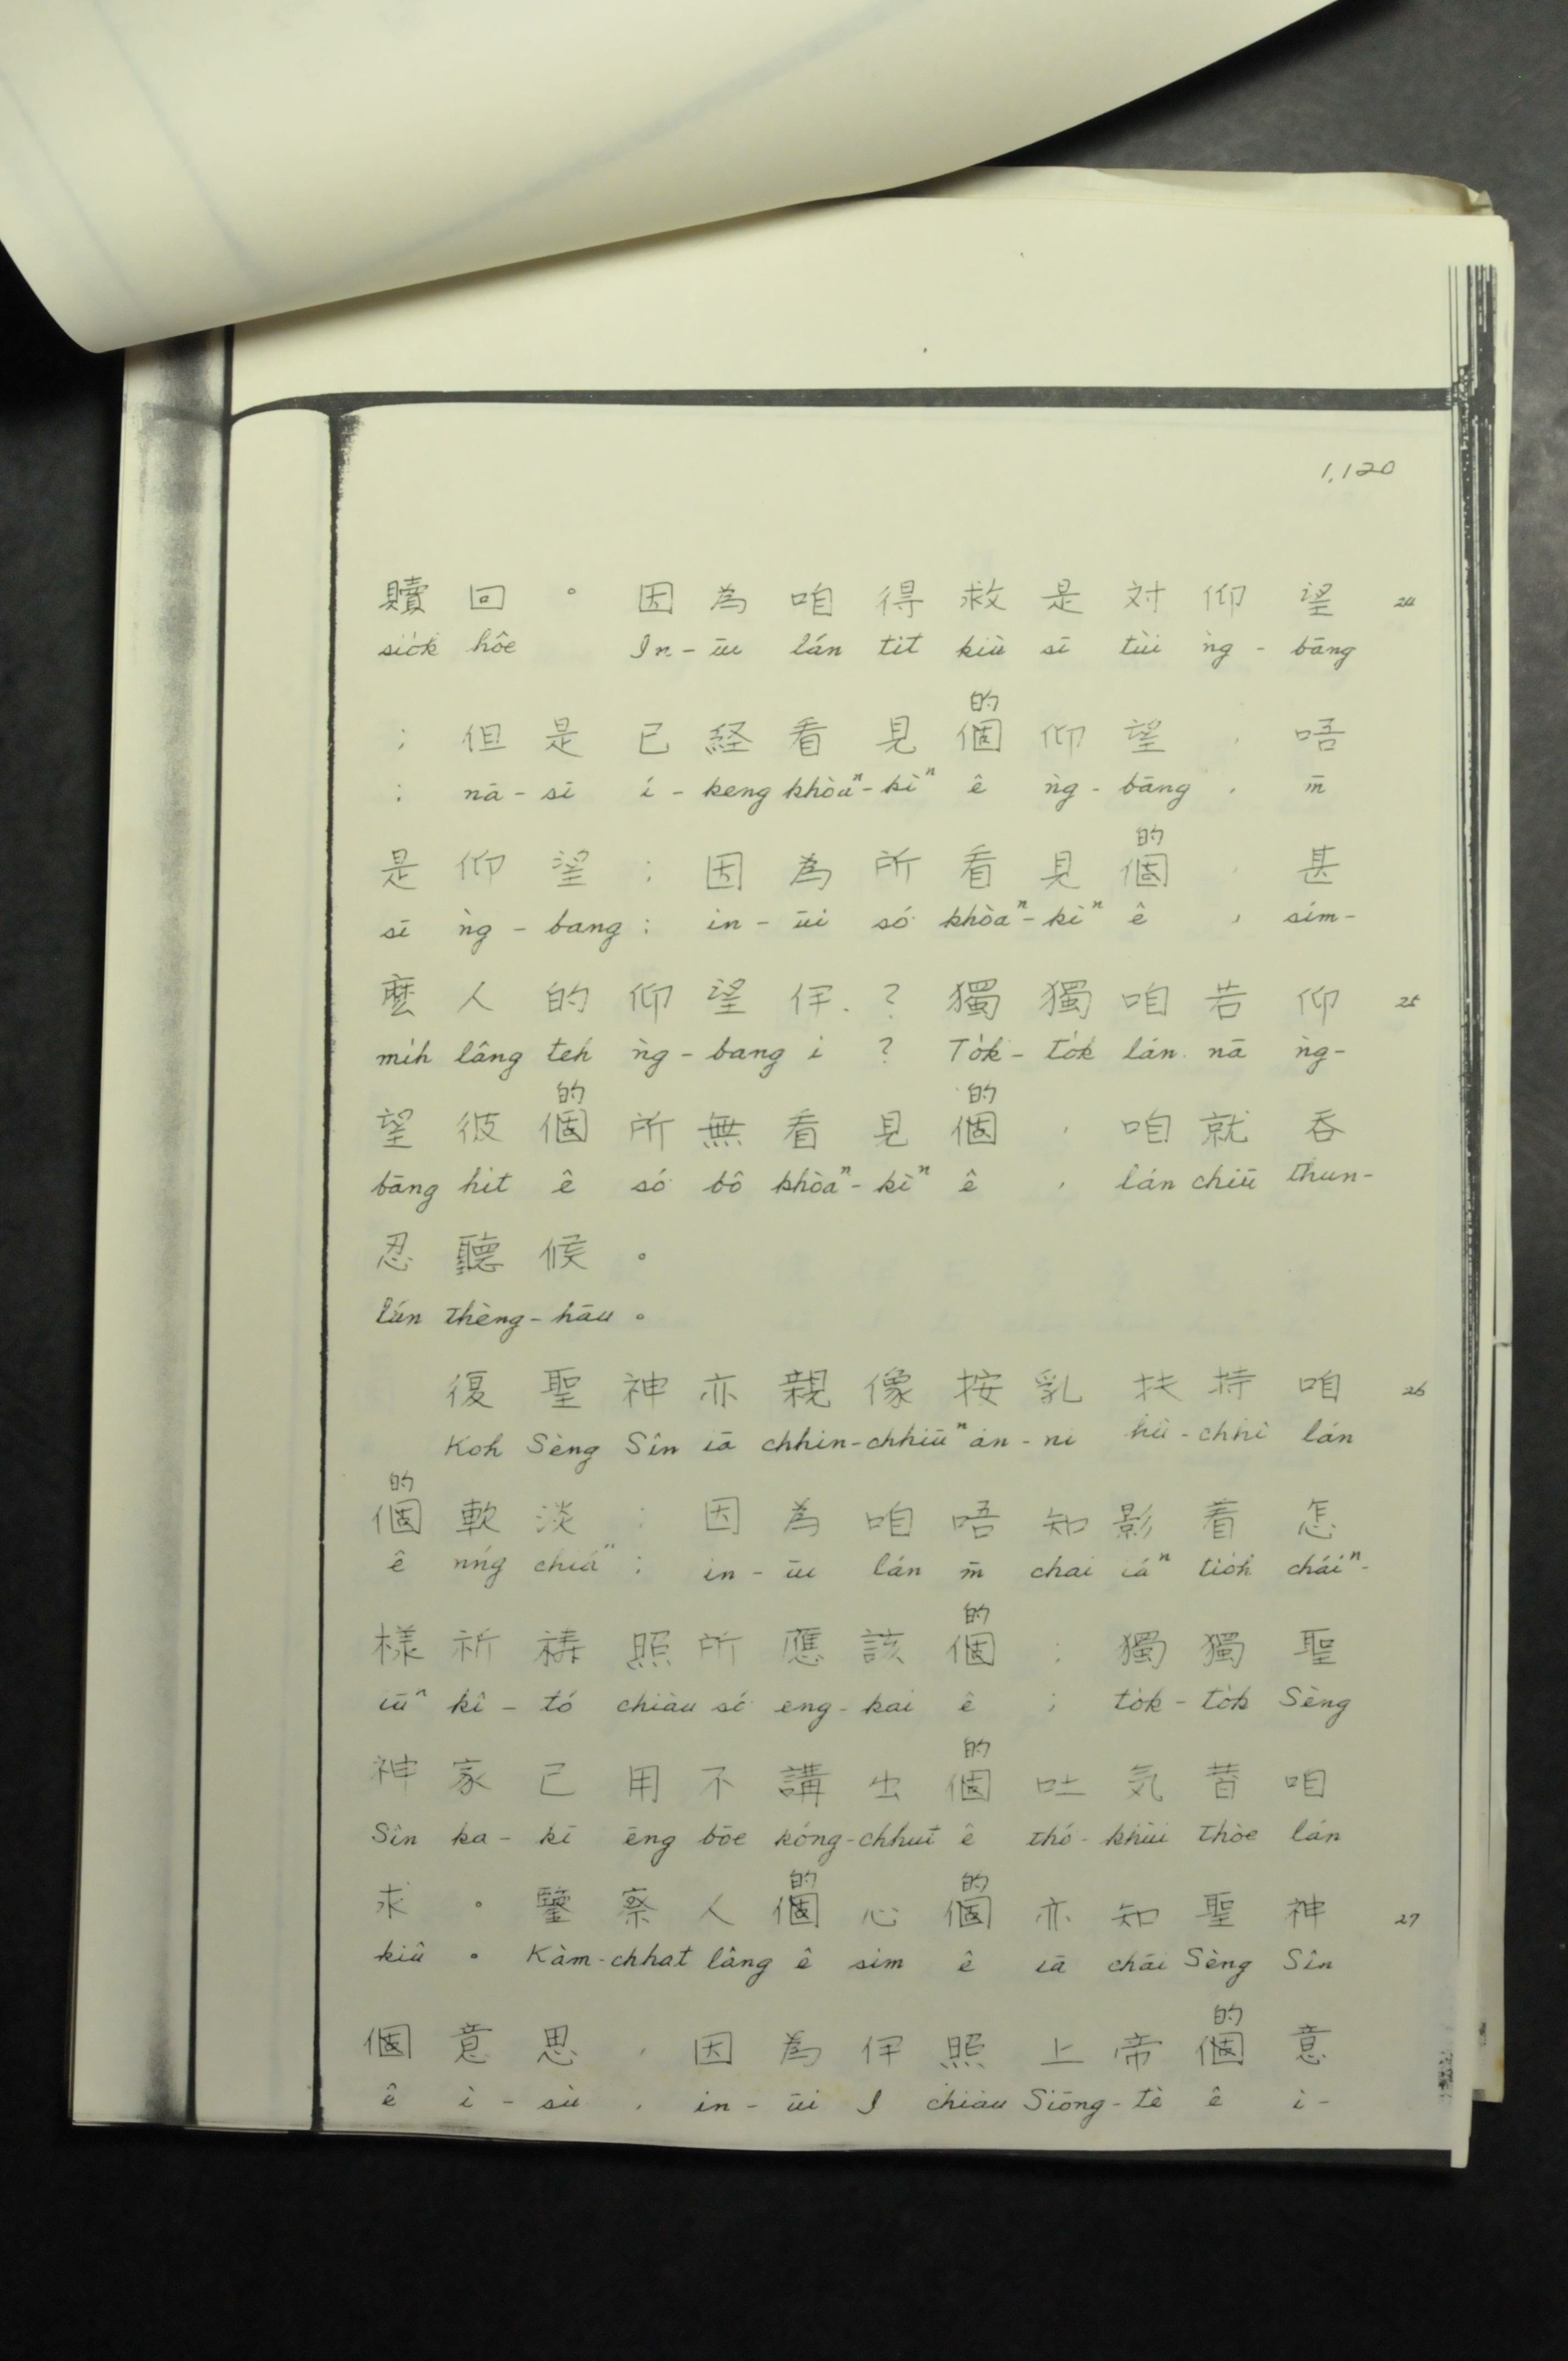 1,120
贖 回 。 因 為 咱 得 救 是 対 仰 望 24
sio̍k hôe In-ūi lán tit kiù sī tùi ǹg-bāng
的
; 但 是 已 経 看 見 個 仰 望 , 唔
; nā-sī í-keng khòaⁿ-kìⁿ ê ǹg-bāng , m̄
的
是 仰 望 ; 因 為 所 看 見 個 , 甚
sī ǹg-bang ; in-ūi só͘ khòaⁿ-kìⁿ ê , sím-
麽 人 的 仰 望 伊 . ? 獨 獨 咱 若 仰 25
mi̍h lâng teh ǹg-bang i ? To̍k-to̍k lán nā ǹg-
的 的
望 彼 個 所 無 看 見 個 , 咱 就 吞
bāng hit ê só͘ bô khòaⁿ-kìⁿ ê , lán chiū thun-
忍 聽 候 。
lún thèng-hāu 。
復 聖 神 亦 親 像 按 乳 扶 持 咱 26
Koh Sèng Sîn iā chhin-chhiūⁿ án-ni hû-chhî lán
的
個 軟 淡 ; 因 為 咱 唔 知 影 着 怎
ê nńg chiáⁿ ; in-ūi lán m̄ chai iáⁿ tio̍h cháiⁿ-
的
樣 祈 祷 照 所 應 該 個 ; 獨 獨 聖
iūⁿ kî-tó chiàu só͘ eng-kai ê ; to̍k-to̍k Sèng
的
神 家 己 用 不 講 出 個 吐 気 替 咱
Sîn ka-kī ēng bōe kóng-chhut ê thó͘-khùi thòe lán
的 的
求 。 鑒 察 人 個 心 個 亦 知 聖 神 27
kiû 。 Kàm-chhat lâng ê sim ê iā chāi Sèng Sîn
的
個 意 思 , 因 為 伊 照 上 帝 個 意
ê ì-sù , in-ūi I chiàu Siōng-tè ê ì-